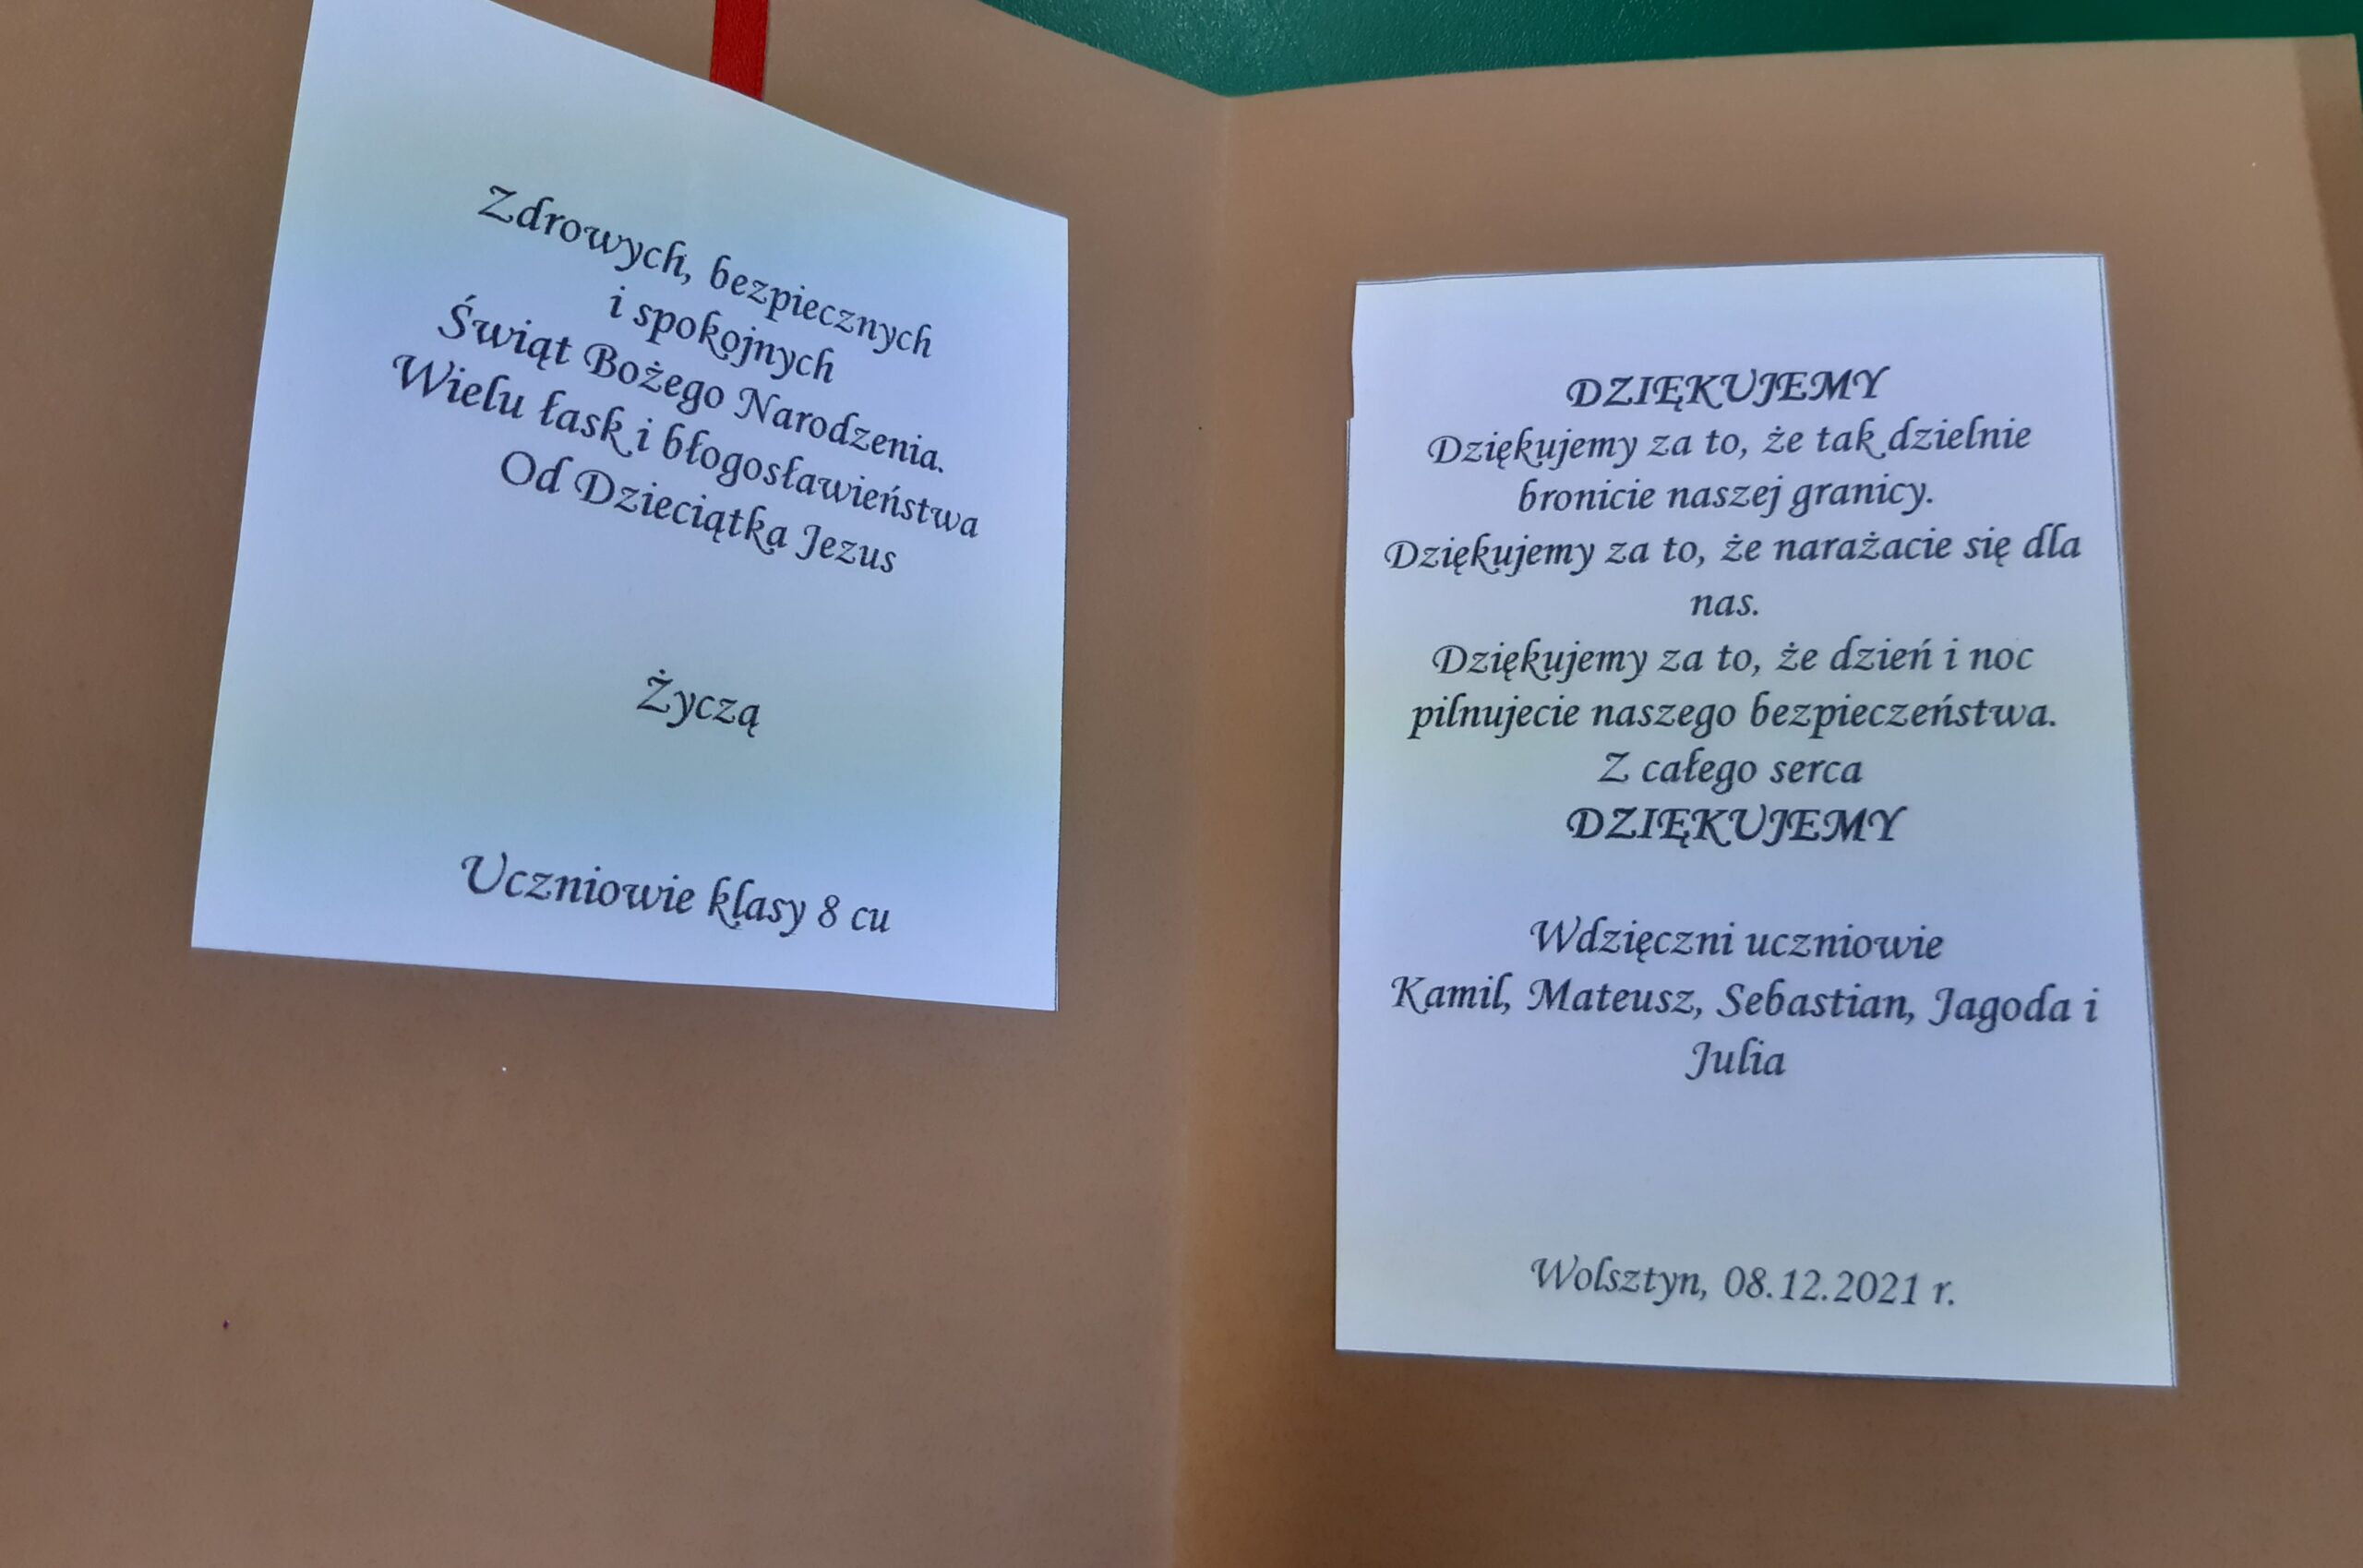 Zdrowych, bezpiecznych
i spokojnych
Świąt Bożego Narodzenia.
Wielu łask i błogosławieństwa
Od Dzieciątka Jezus
Życzą
Uczniowie klasy 8 cu
DZIĘKUJEMY
Dziękujemy za to, że tak dzielnie
bronicie naszej granicy.
Dziękujemy za to, że narażacie się dla
nas.
Dziękujemy za to, że dzień i noc
pilnujecie naszego bezpieczeństwa.
Z całego serca
DZIĘKUJEMY
Wdzięczni uczniowie
Kamil, Mateusz, Sebastian, Jagoda i
Julia
Wolsztyn, 08.12.2021 r.